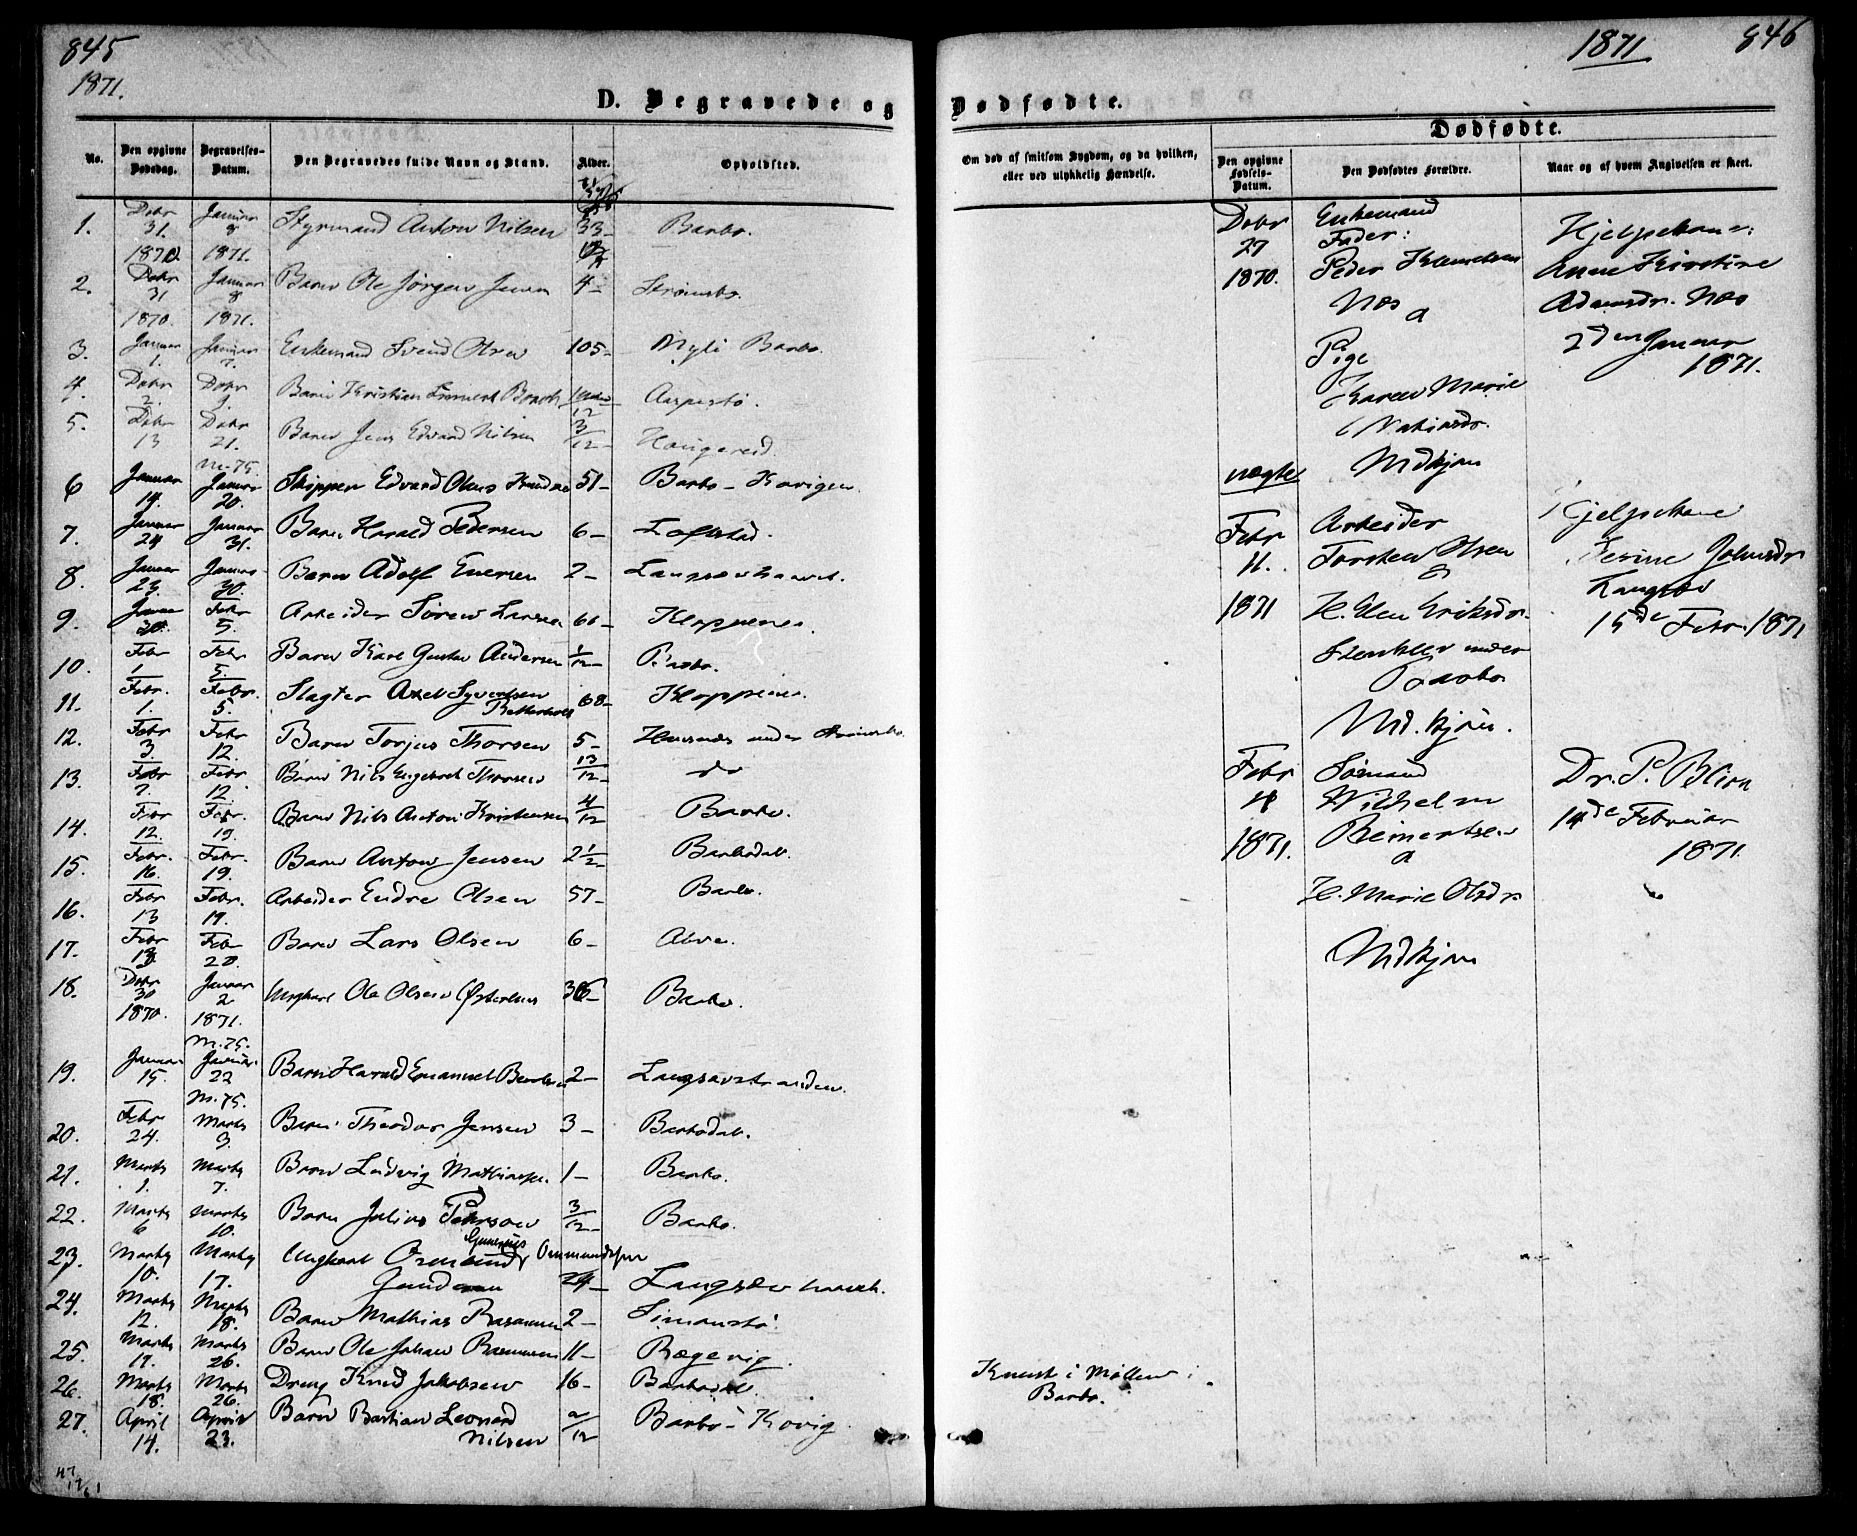 845
1871.
D. Begravede og
No.
Den opgivne Dødsdag.
Begravelses-Datum.
Den Begravedes fulde Navn og Stand.
Alder.
Opholdssted.
1. Debr 31. 1870. Januar 8 1871. Styrmand Anton Nilsen 33– Barbo.
2. Debr 31 1870. Januar 8 1871. Barn Ole Jørgen Jensen 4– Strømsbo.
3. Januar 1. Januar 7. Enkemand Svend Olsen 105– Myli Barbo.
4. Debr 2. Debr 9. Barn Kristian
5. Debr 13 Debr 21. Barn Jens Edvard Nilsen 3/12– Haugereid
M. 75.
6 Januar 14. Januar 20. Skipper Edvard Olaus Knudsen 51– Barbo– Kovigen.
7. Januar 24 Januar 31. Barn Harald Pedersen 6– Loftstad.
8. Januar 23. Januar 30. Barn Adolf Evensen 2– Langsævhavet.
9. Januar 5. Febr 5. Arbeider Søren Larsen 66– Kloppene.
10. Febr 1. Febr 5. Barn Karl Gustav Andersen 1/12– Barbo.
11. Febr. 1. Febr. 5. Slagter Axel Syvertsen 68– Kloppene.
12. Febr 3 Febr 12. Barn Torjus Thorsen 5– under Strømsbo.
13. Febr 7. Febr 12. Barn Nils Engebret Thorsen 13/12– do
14. Febr 12. Febr. 19. Barn Nils Anton Kristensen 4/12 Barbo.
15. Febr. 16. Febr. 19. Barn Anton Jensen 2 1/2– Barbodal.
16. Febr 13 Febr. 19. Arbeider Endre Olsen 57– Barbo.
17. Febr Febr 20. Barn Lars Olsen 6–
18. Debr 30 1870. Januar 2 1871. Ungkarl Ole Olsen Østerhus 36– Barbo.
M. 75.
19. Januar 15. Januar 22 Barn Harald Emanuel 2– Langsævstranden.
M. 75.
20. Febr 24. Marts 3. Barn Theodor Jensen 3– Barbodal.
21. Marts 1. Marts 7. Barn Ludvig Mathiasen 1– Barbo.
22. Marts 6 Marts 10. Barn Julius 3/12– Barbo.
23. Marts 10. Marts 17. Ungkarl Gunerius Ommundsen
24– Langsæv
24. Marts 12. Marts 18. Barn Mathias Rasmussen 2– Simonstø.
25. Marts 17. Marts 26. Barn Ole Johan Rasmussen 11– Bøgevig.
26. Marts 18. Marts 26. Dreng Knud Jakobsen 16– Barbodal.
27. April 14. April 23. Barn Bastian Leonard Nilsen 2/12 Barbo– Kovig
1871 846
Dødfødte.
Om død af smitsom Sygdom, og da hvilken, eller ved ulykkelig Hændelse.
Dødfødte.
Den opgivne Fødsels-Datum.
Den Dødfødtes Forældre.
Naar og af hvem Angivelsen er skeet.
Debr 27 1870.
Enkemand
Fader:
Peder
Næs
a
Pige
Karen Marie
Udkjøn
Hjelpekone:
Anne Kirstine
Adamsdr. Næs
2den Januar
1871.
uægte
Febr 11. 1871
Arbeider
Torsten Olsen
&
H. Elen Eriksdr.
under
Barbo
Udkjøn.
Hjelpekone
Johnsdr
Langsæv
15de Febr. 1871
Febr 1871.
Sømand
Wilhelm
Reinertsen
a
H. Marie Olsdr
Udkjøn
Dr. P. Blom
14de Februar
1871.
Knust i Møllen i
Barbo.